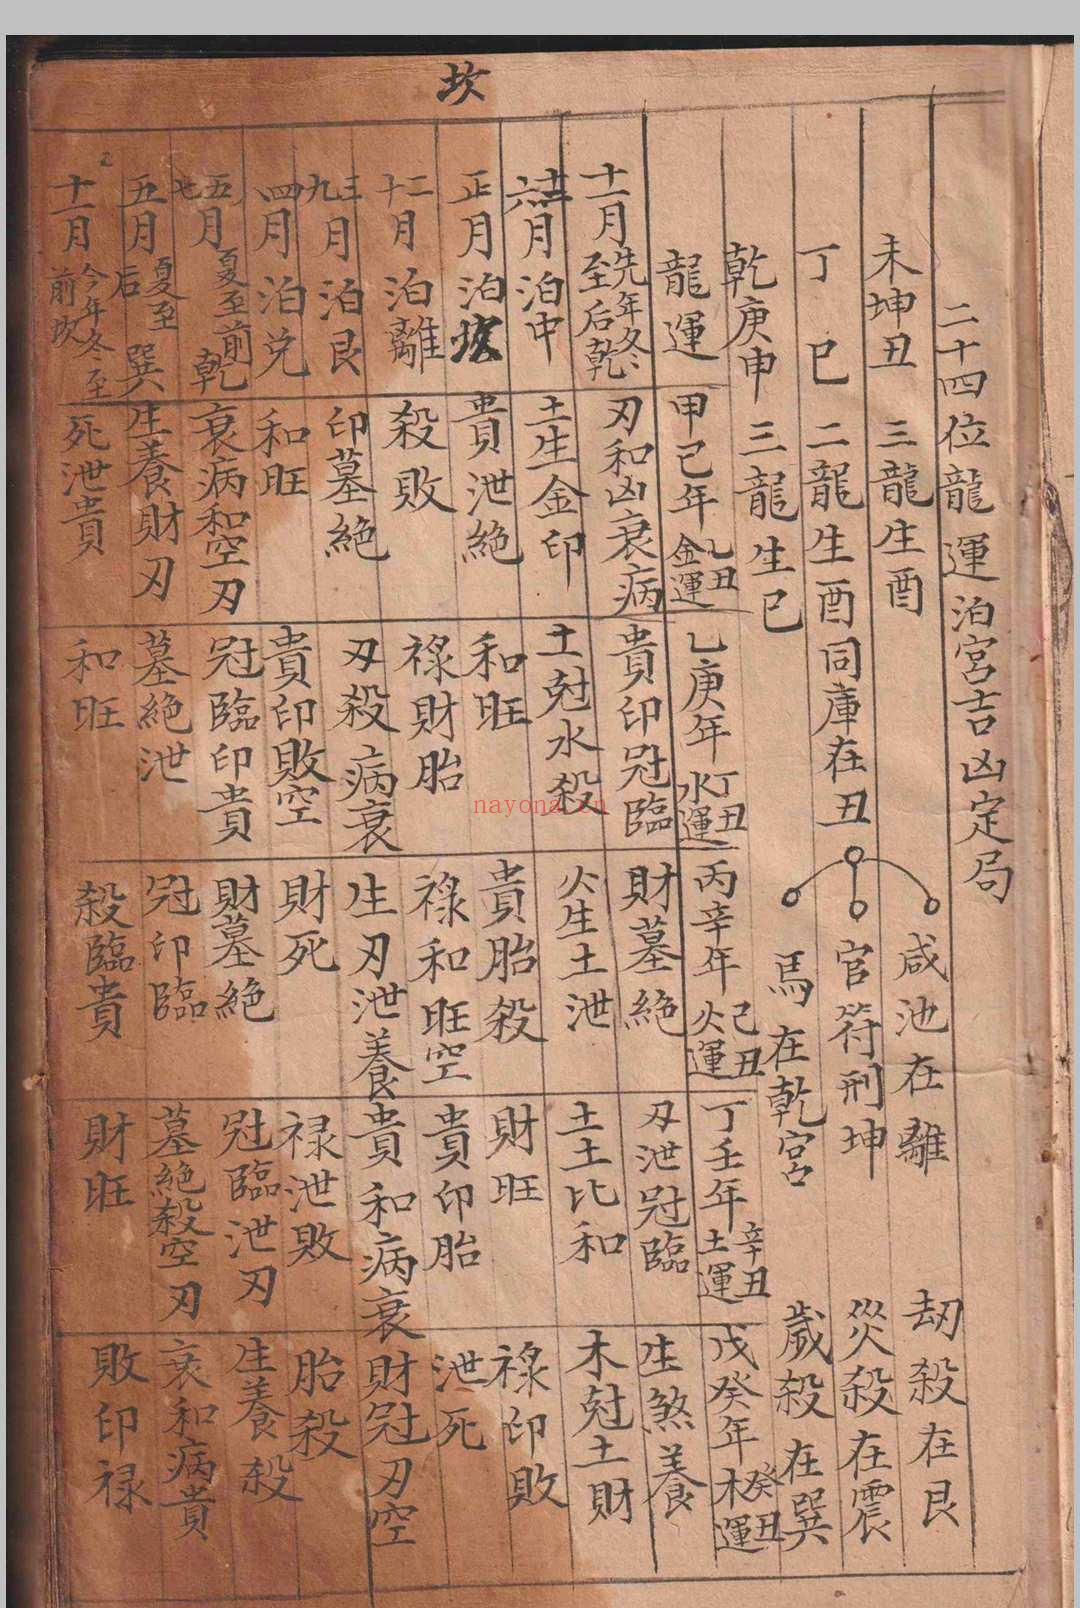 坎
二十四位龍運泊宮吉凶定局
未坤丑 三龍生酉 咸池在離 劫殺在艮
丁 巳 二龍生酉同庫在丑 官符刑坤 災殺在震
乾庚申 三龍生巳 馬在乾宮 歲殺在巽
龍運 甲己年 乙丑金運 乙庚年 丁丑水運 丙辛年 己丑火運 丁壬年 辛丑土運 戊癸年 癸丑木運
十一月 先年冬至后乾 刃和凶衰病 貴印冠臨 財墓絕 刃泄冠臨 生煞養
十二六月泊中 土生金印 土尅水殺 火生土泄 土土比和 木尅土財
正月泊坎 貴泄絕 和旺 貴胎殺 財旺 祿印敗
二十月泊離 殺敗 祿財胎 祿和旺空 貴印胎 泄死
三九月泊艮 印墓絕 刃殺病衰 生刃泄養 貴和病衰 財冠刃空
四月泊兌 和旺 貴印敗空 財死 禄泄敗 胎殺
五七月 夏至前乾 衰病和空刃 冠臨印貴 財墓絕 冠臨泄刃 生養殺
五月 夏至后巽 生養財刃 墓絕泄 冠印臨 墓絕殺空刃 衰和病貴
十一月 今年冬至前坎 死泄貴 和旺 殺臨貴 財旺 敗印禄
nayona.cn